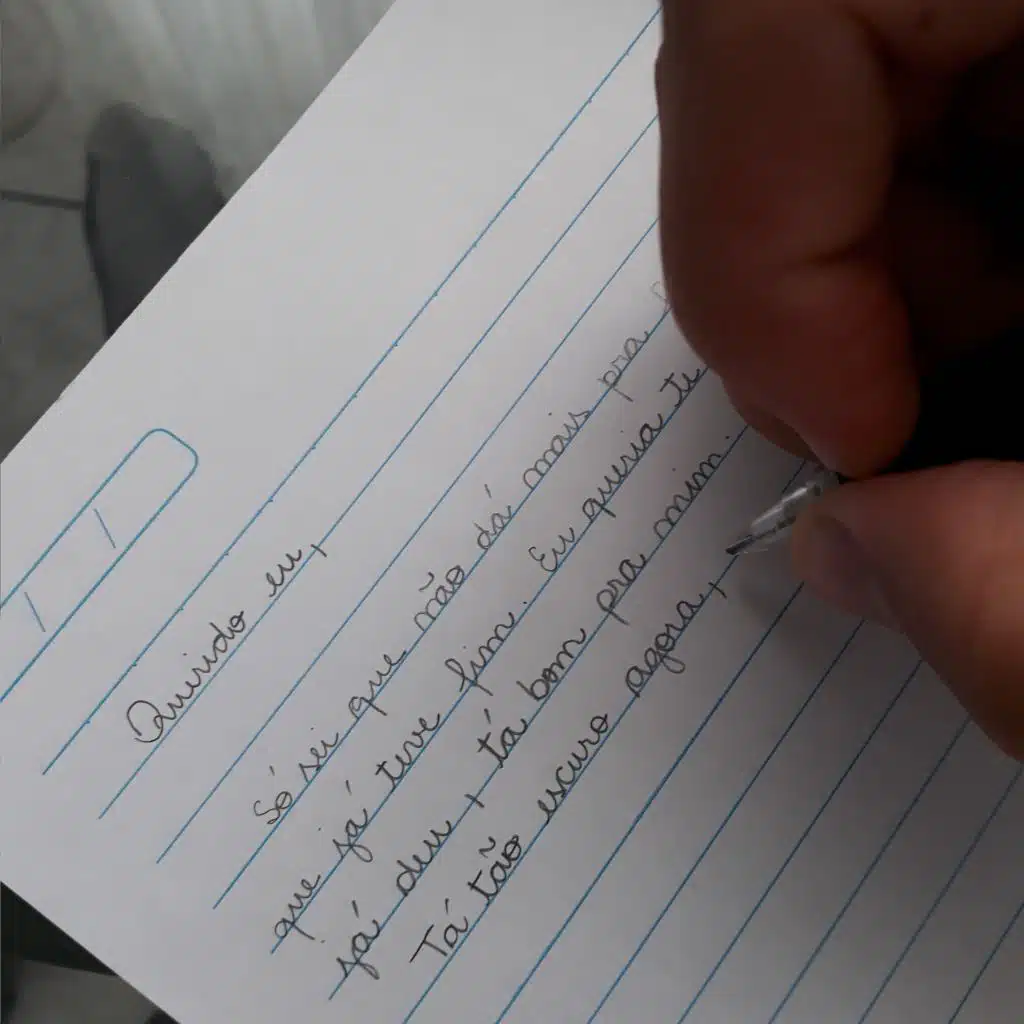 Querido eu,
Só sei que não dá mais pra
que já teve fim. Eu queria te
já deu, tá bom pra mim.
Tá tão escuro agora,